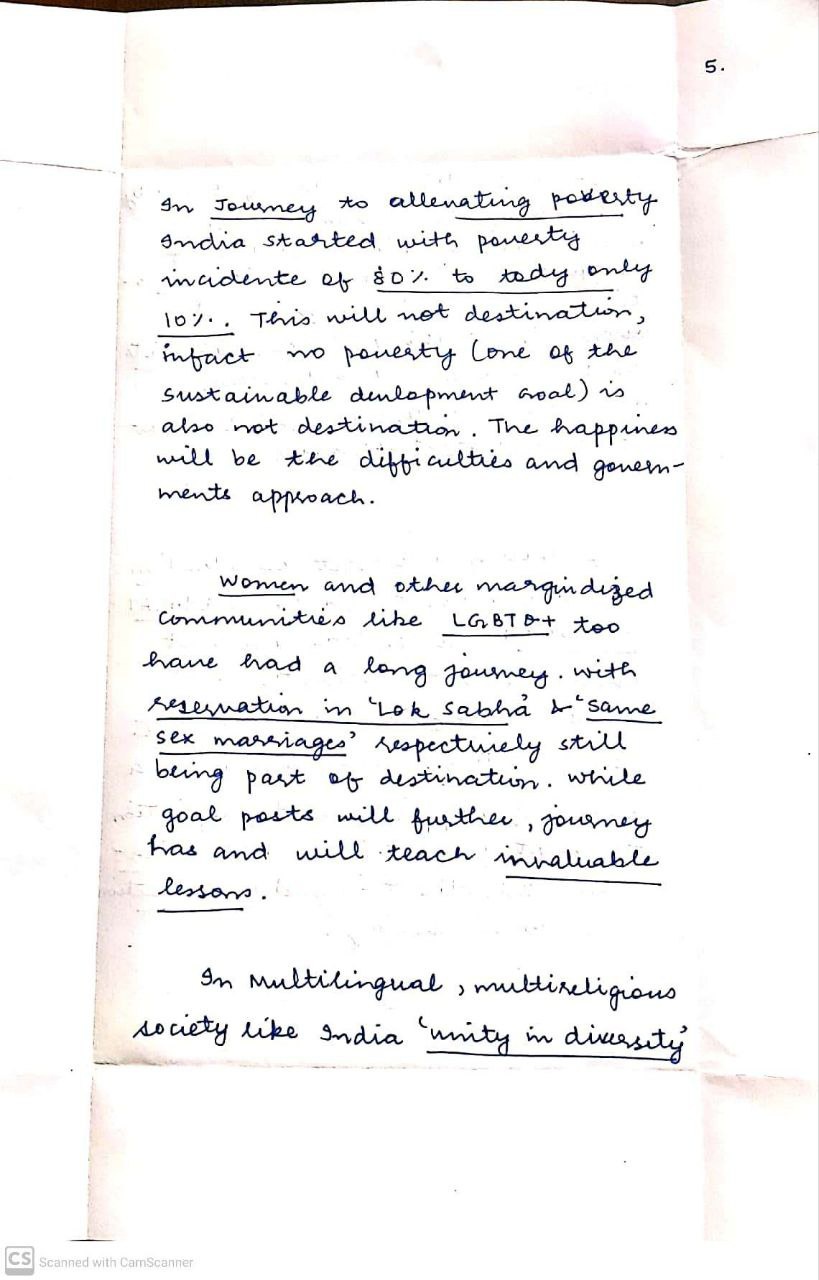 5.
In Journey to allenating poverty
India started with poverty
incidente of 80% to tody only
10%. This will not destination,
infact no poverty (one of the
sustainable devlopment Goal) is
also not destination. The happiness
will be the difficulties and govern-
ments approach.
Women and other marginalized
communities like LGBTQ+ too
have had a long journey. with
reservation in 'Lok Sabha' & 'same
sex marriages' respectively still
being part of destination. While
goal posts will further, journey
has and will teach invaluable
lessons.
In Multilingual, multireligious
society like India 'unity in diversity'
CS Scanned with CamScanner